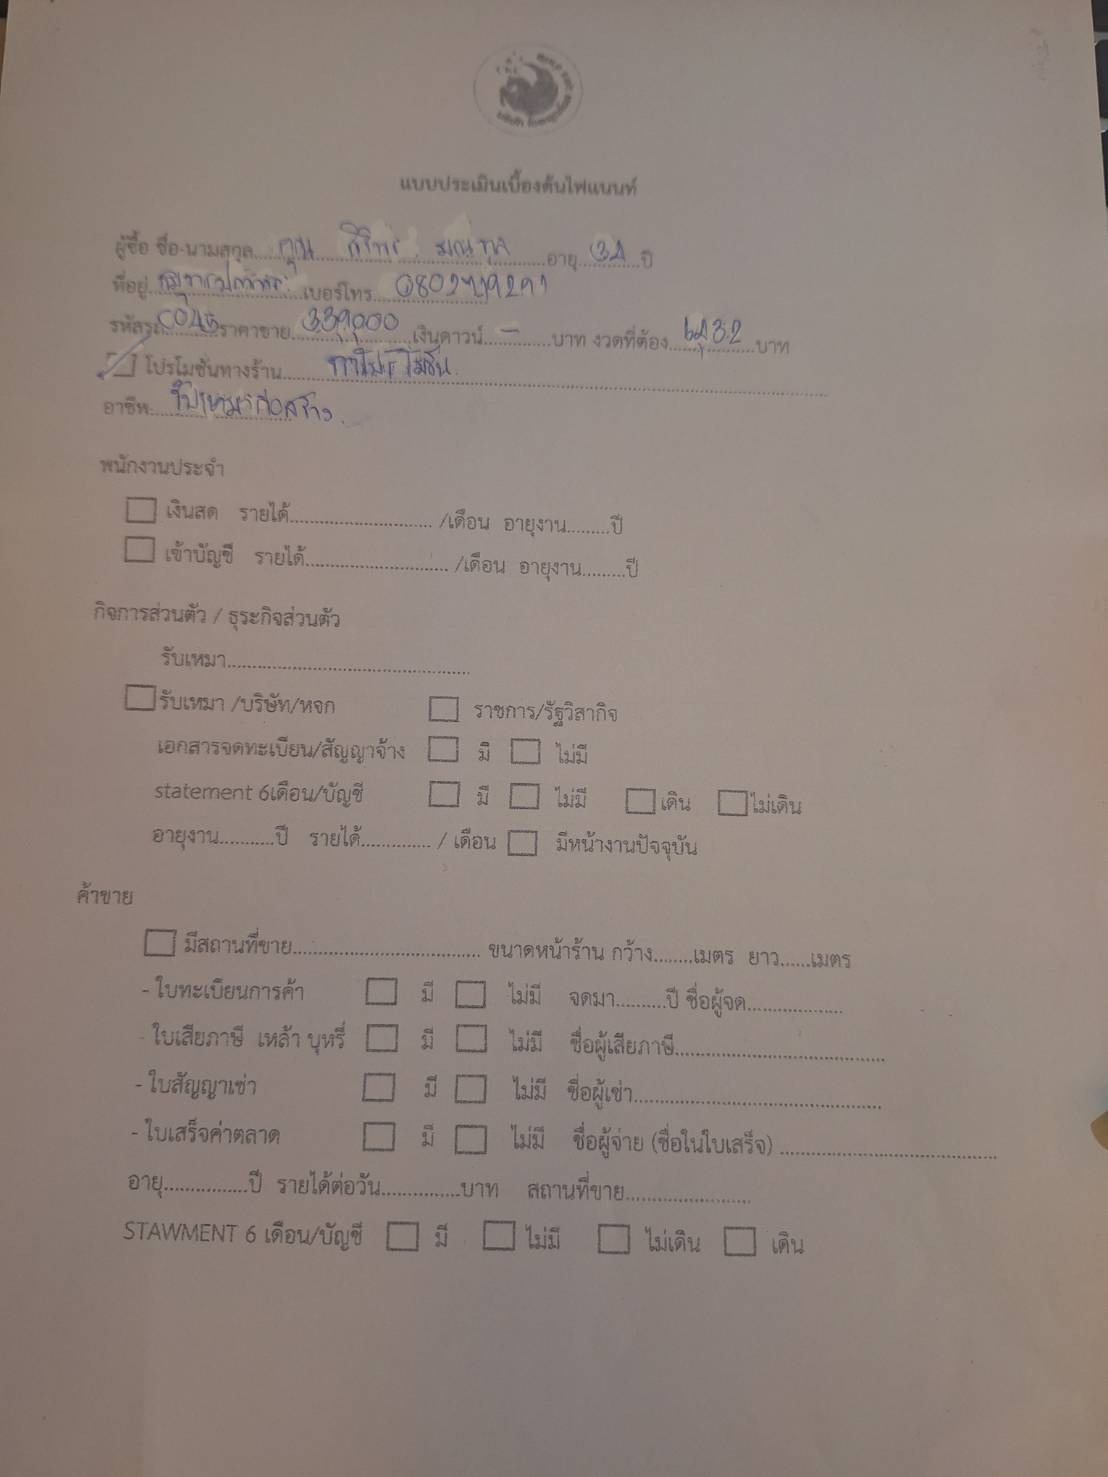 แบบประเมินเบื้องต้นไฟแนนท์
ผู้ซื้อ ชื่อ-นามสกุล คุณ อายุ 34 ปี
ที่อยู่ เบอร์โทร
รหัสรถ C045 ราคาขาย 339,000 เงินดาวน์ - บาท งวดที่ต้อง 6,432 บาท
โปรโมชั่นทางร้าน
อาชีพ รับเหมาก่อสร้าง
พนักงานประจำ
เงินสด รายได้ /เดือน อายุงาน ปี
เข้าบัญชี รายได้ /เดือน อายุงาน ปี
กิจการส่วนตัว / ธุระกิจส่วนตัว
รับเหมา
รับเหมา /บริษัท/หจก ราชการ/รัฐวิสากิจ
เอกสารจดทะเบียน/สัญญาจ้าง มี ไม่มี
statement 6เดือน/บัญชี มี ไม่มี เดิน ไม่เดิน
อายุงาน ปี รายได้ / เดือน มีหน้างานปัจจุบัน
ค้าขาย
มีสถานที่ขาย ขนาดหน้าร้าน กว้าง เมตร ยาว เมตร
- ใบทะเบียนการค้า มี ไม่มี จดมา ปี ชื่อผู้จด
- ใบเสียภาษี เหล้า บุหรี่ มี ไม่มี ชื่อผู้เสียภาษี
- ใบสัญญาเช่า มี ไม่มี ชื่อผู้เช่า
- ใบเสร็จค่าตลาด มี ไม่มี ชื่อผู้จ่าย (ชื่อในใบเสร็จ)
อายุ ปี รายได้ต่อวัน บาท สถานที่ขาย
STAWMENT 6 เดือน/บัญชี มี ไม่มี ไม่เดิน เดิน